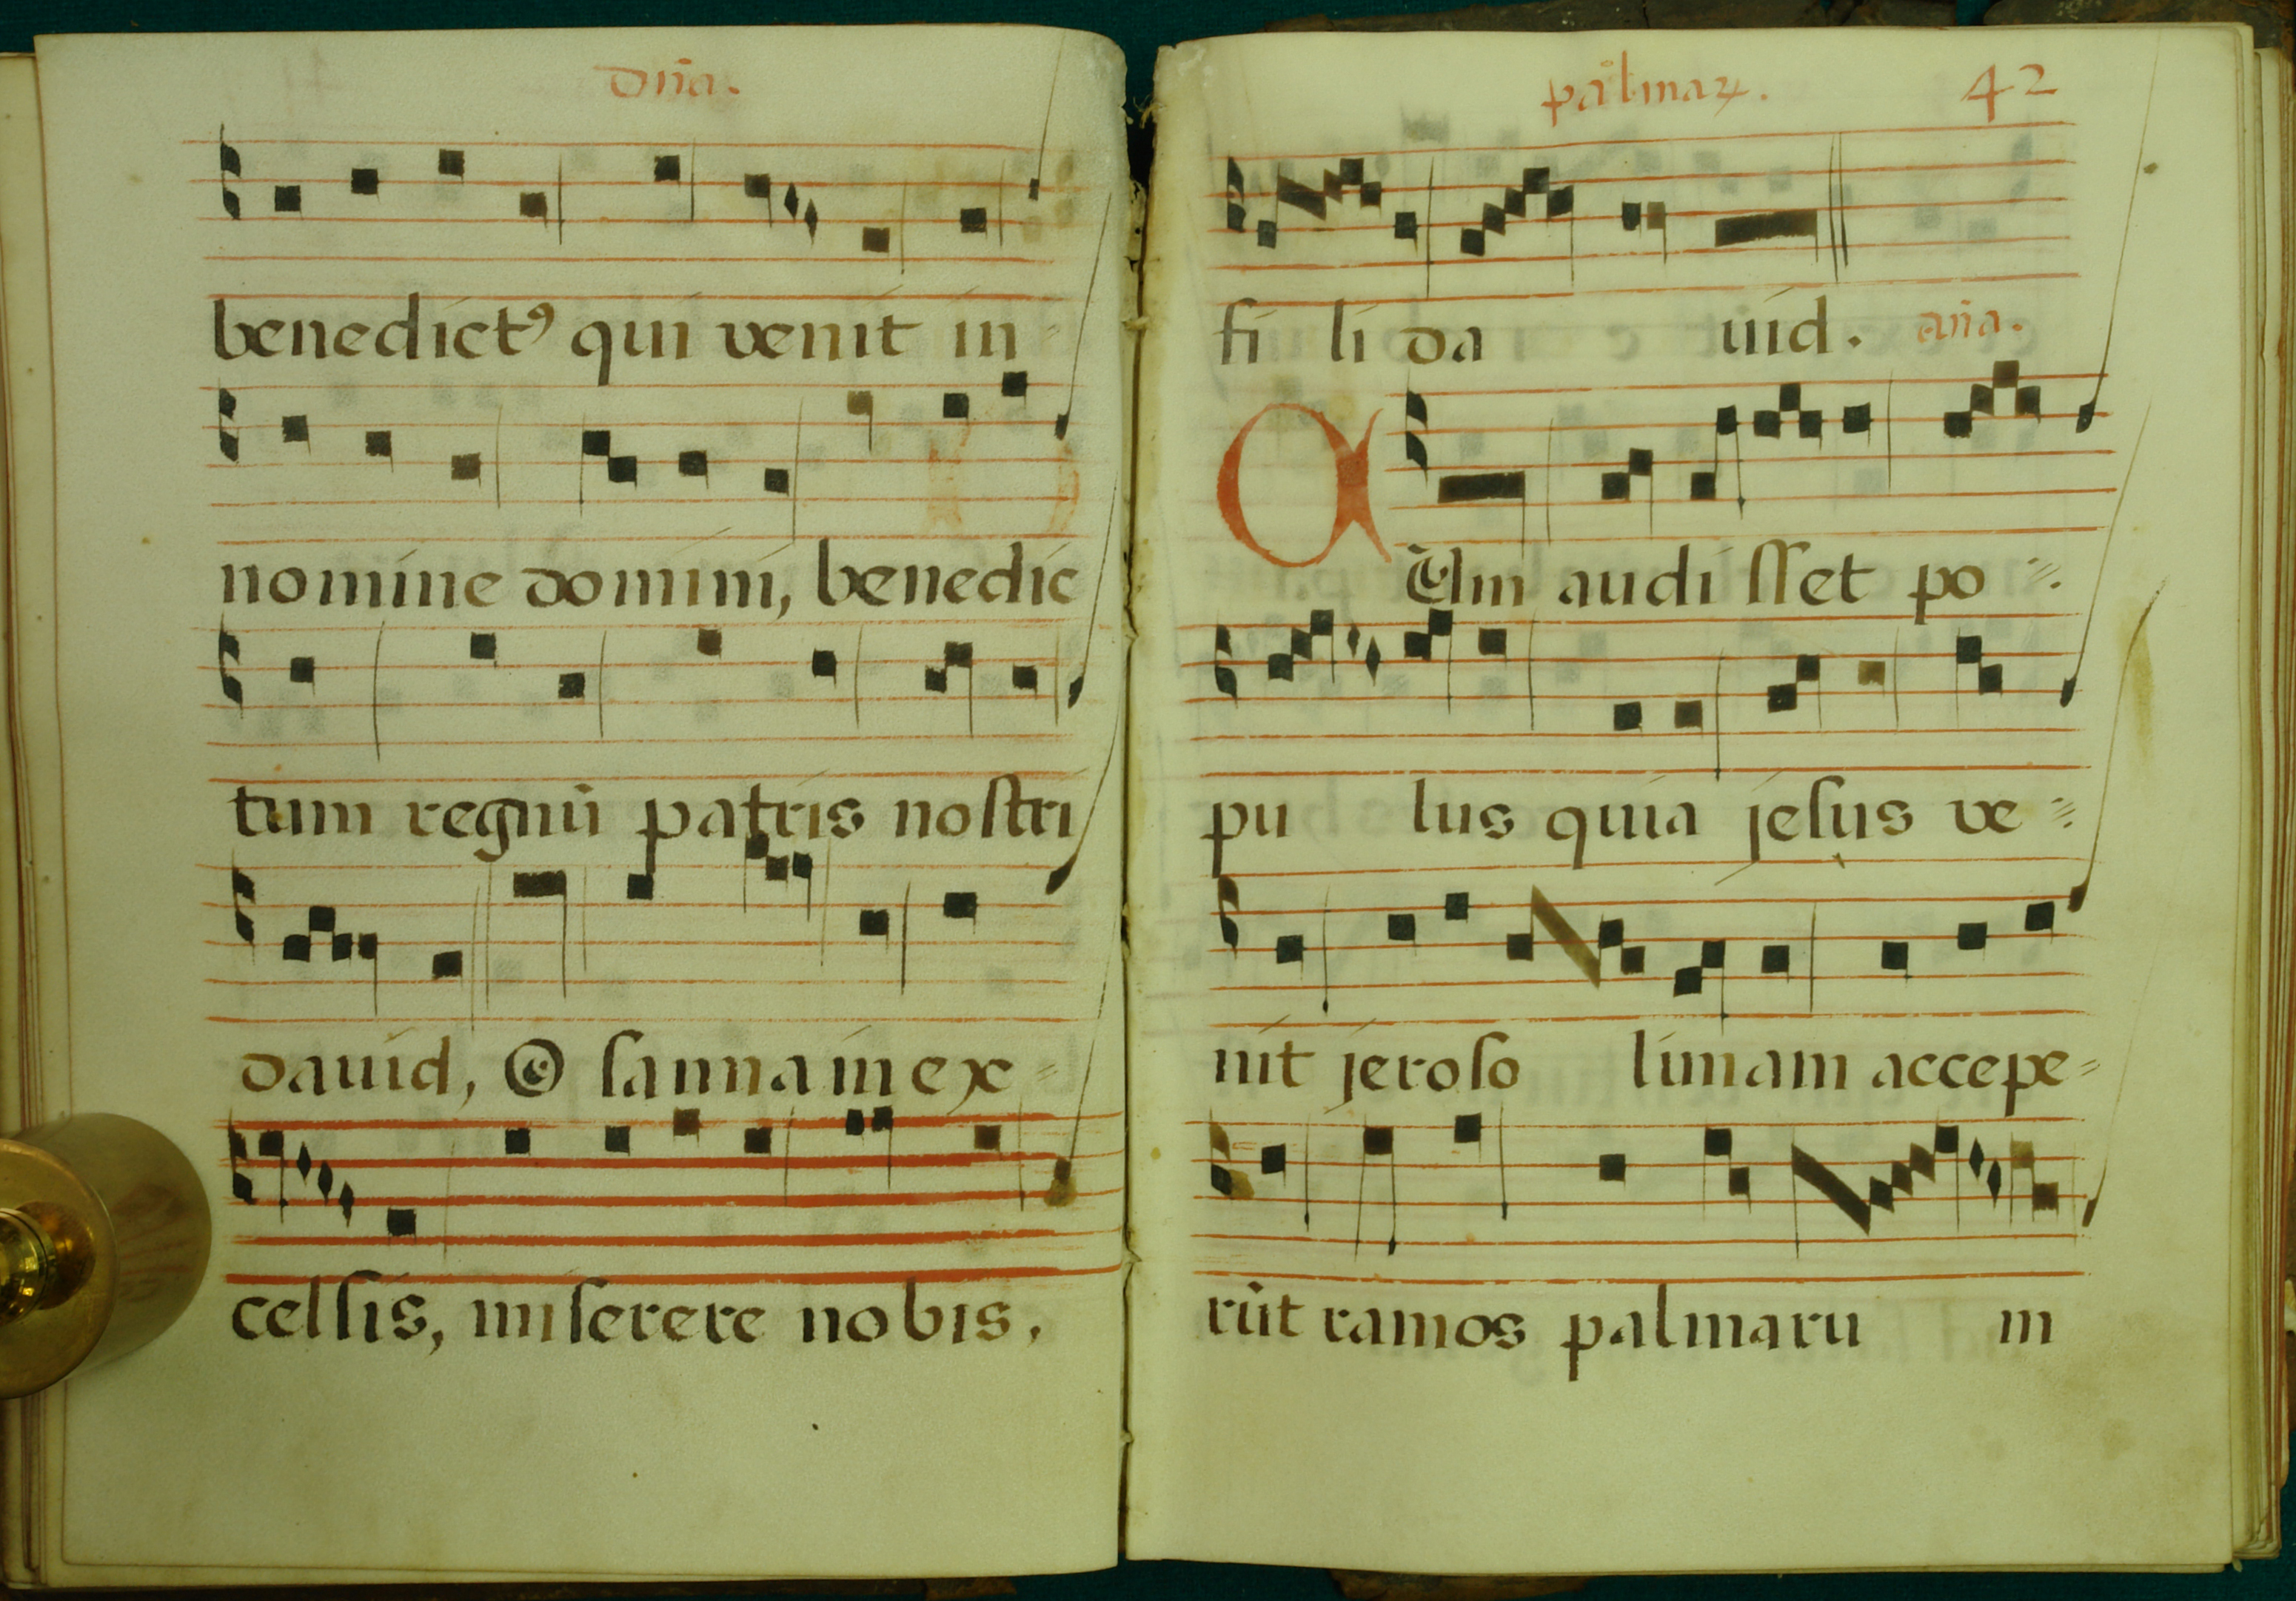 dn̄a.
benedictꝰ qui venit in-
nomine domini, benedic
tum regnū patris noſtri
dauid, O ſanna in ex-
celſis, miſerere nobis,
palmaꝝ. 42
fi li da uid. an̄a.
CUm audi ſſet po-
pu lus quia jeſus ve-
nit jeroſo limam accepe-
rūt ramos palmaru m